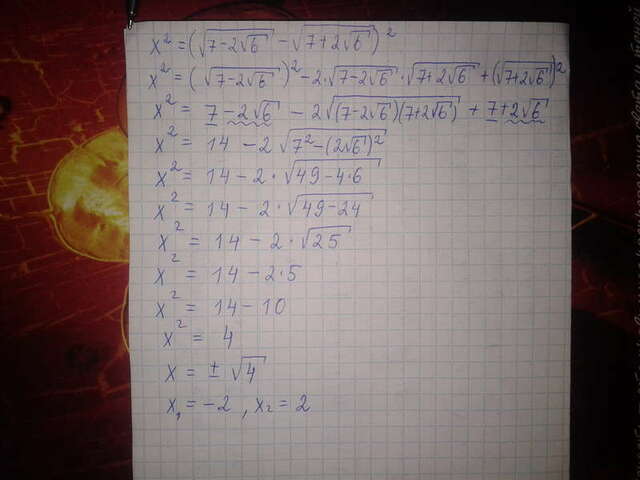 x² = (√(7-2√6) - √(7+2√6))²
x² = (√(7-2√6))² - 2·√(7-2√6)·√(7+2√6) + (√(7+2√6))²
x² = 7-2√6 - 2√((7-2√6)(7+2√6)) + 7+2√6
x² = 14 - 2√(7²-(2√6)²)
x² = 14 - 2·√(49-4·6)
x² = 14 - 2·√(49-24)
x² = 14 - 2·√25
x² = 14 - 2·5
x² = 14 - 10
x² = 4
x = ± √4
x₁ = -2 , x₂ = 2